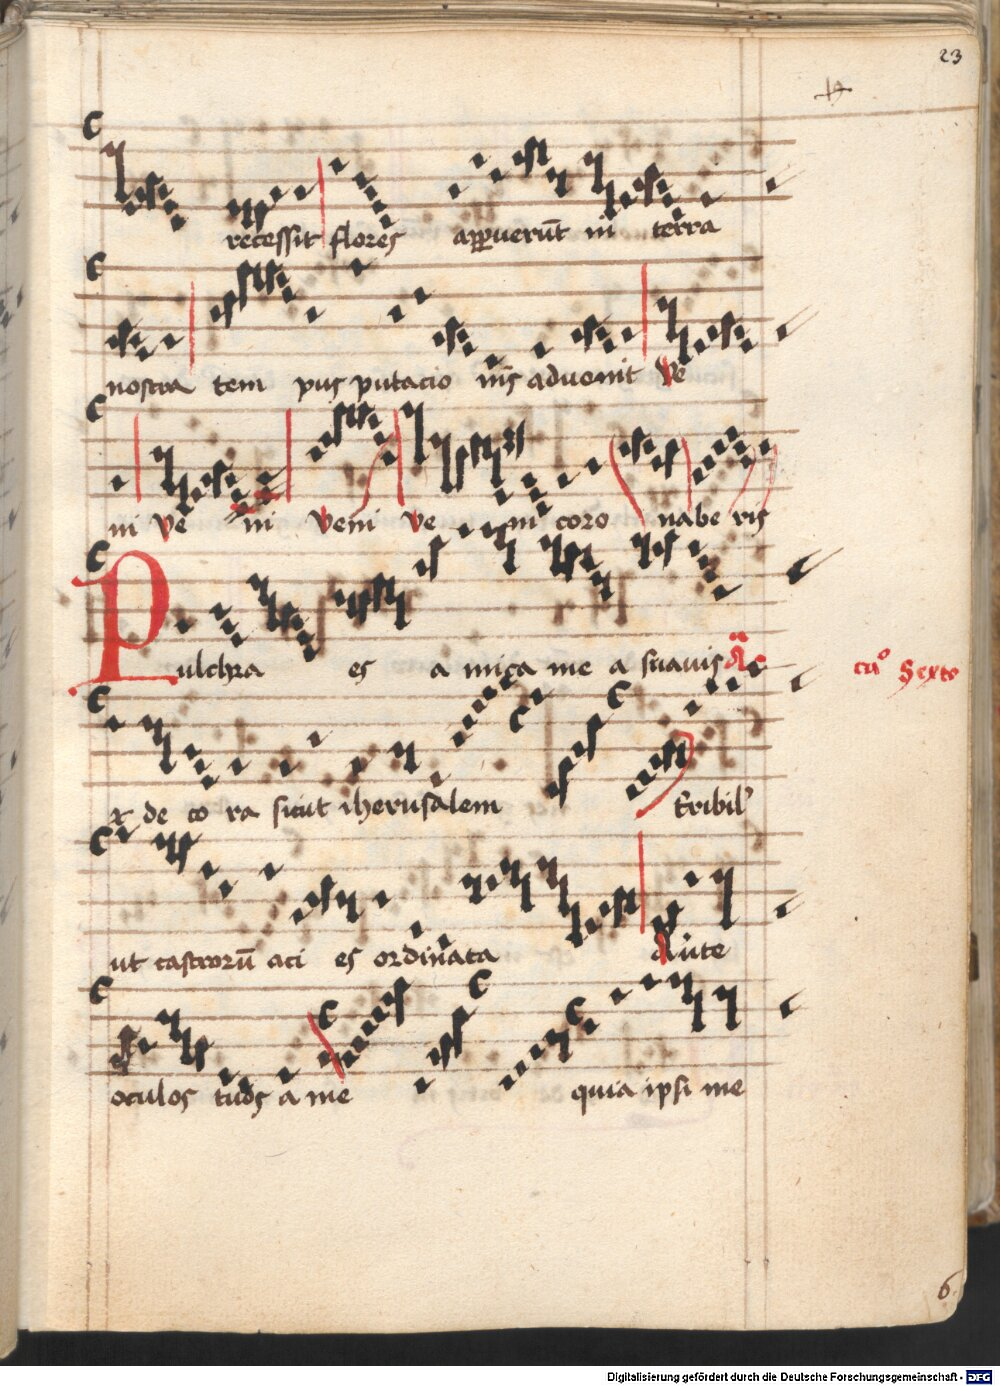 23
recessit flores apparuerūt in terra
nostra tem pus putacio nis advenit Ve
ni Ve ni Veni Ve ni coro nabe ris
Pulchra es a mica me a suavis
cū Sexto
de co ra sicut iherusalem tribil'
ut castrorū aci es ordinata A
oculos tuos a me quia ipsi me
6
Digitalisierung gefördert durch die Deutsche Forschungsgemeinschaft - DFG